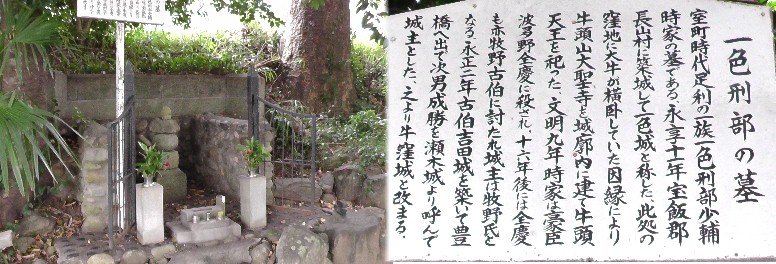 一色刑部の墓
室町時代足利の一族一色刑部少輔
時家の墓である永享十一年宝飯郡
長山村に築城して一色城と称した此処の
窪地に大牛が横卧していた因縁により
牛頭山大聖寺を城廓内に建て牛頭
天王を祀った、文明九年時家は豪臣
波多野全慶に殺され、十六年後には全慶
も亦牧野古伯に討たれ城主は牧野氏と
なる、永正二年古伯吉田城を築いて豊
橋へ出で次男成勝を瀬木城より呼んで
城主とした、之より牛窪城と改まる。